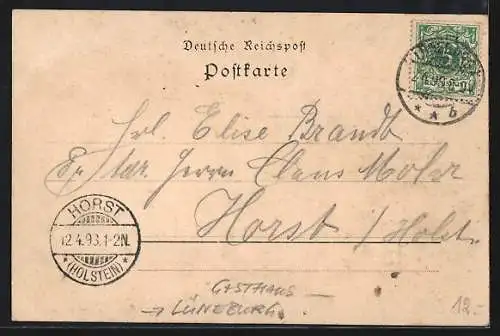 Deutsche Reichspost
Postkarte
* * b
Frl. Elise Brandt
Herrn Claus Mohr
Horst / Holst.
HORST
12.4.93.1-2N.
* (HOLSTEIN) *
GASTHAUS
→ LÜNEBURG
12.-